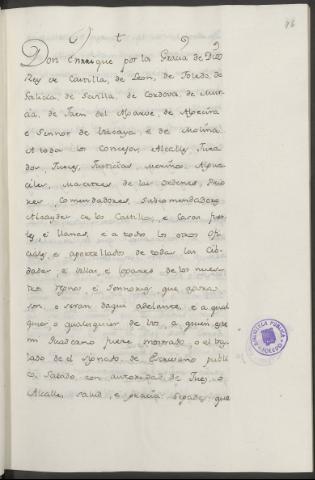 46
Don Enrrique por la Gracia de Dios
Rey de Castilla, de Leon, de Toledo, de
Galicia, de Sevilla, de Cordova, de Mur
cia, de Jaen del Algarve, de Algecira
e Sennor de Vizcaya e de Molina
A todos los Concejos, Alcalles, Jura
dos, Jueces, Justicias, Merinos, Algua
ciles, Maestres de las Ordenes, Prio
res, Comendadores, Subcomendadores
Alcaydes de los Castillos, e Casas fuer
tes, e llanas, e a todos los otros ofi
ciales, e aportellados de todas las Cib
dades, e villas, e logares de los nues
tros regnos, e Sennorios que agora
son, o seran daqui adelante, e a qual
quier o qualesquier de vos, a quien este
mi Quaderno fuere mostrado, o el tras
lado de el signado de Escrivano publi
co, sacado con autoridad de Juez, o
Alcalle, salud, e gracia. Sepades que
BIBLIOTECA PUBLICA
TOLEDO